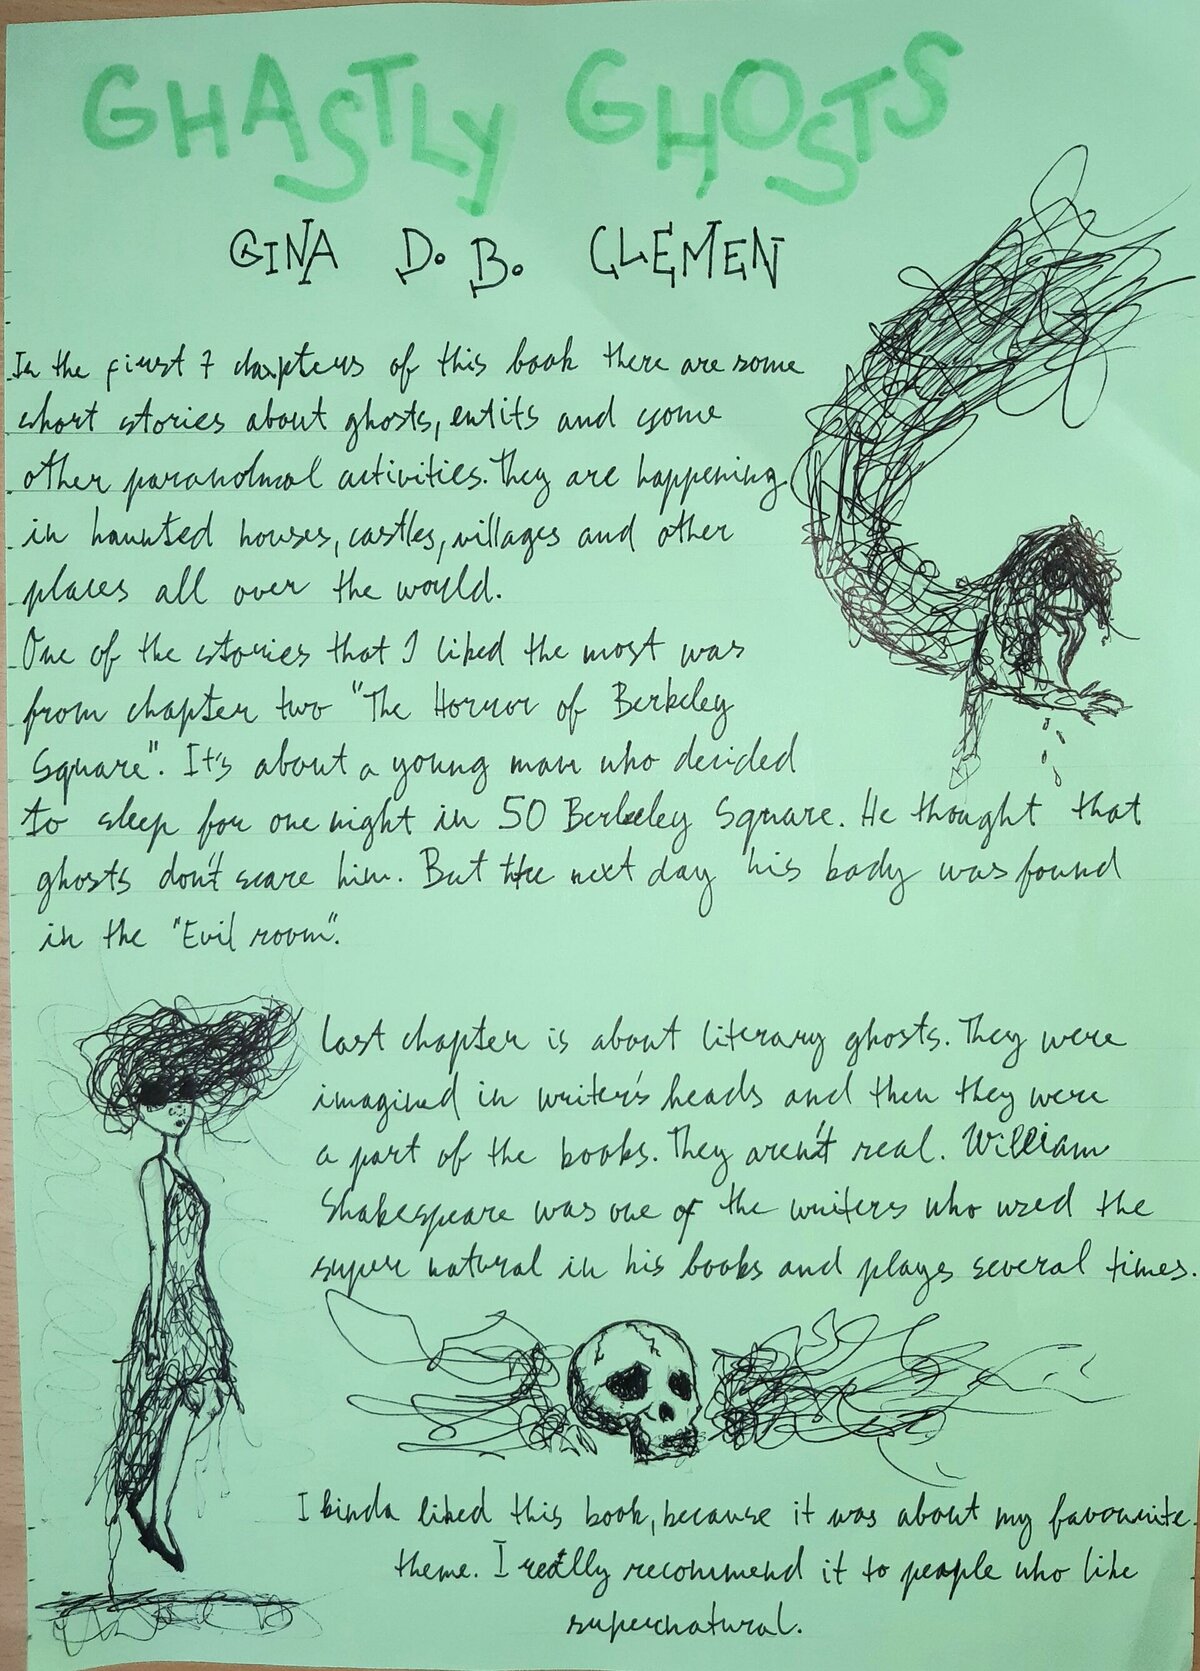 GHASTLY GHOSTS
GINA D. B. CLEMEN
In the first 7 chapters of this book there are some
short stories about ghosts, entits and some
other paranolmal activities. They are happening
in haunted houses, castles, villages and other
places all over the world.
One of the stories that I liked the most was
from chapter two "The Horror of Berkeley
Square". It's about a young man who decided
to sleep for one night in 50 Berkeley Square. He thought that
ghosts don't scare him. But the next day his body was found
in the "Evil room".
Last chapter is about literary ghosts. They were
imagined in writer's heads and then they were
a part of the books. They aren't real. William
Shakespeare was one of the writers who used the
super natural in his books and plays several times.
I kinda liked this book, because it was about my favourite
theme. I really recommend it to people who like
supernatural.